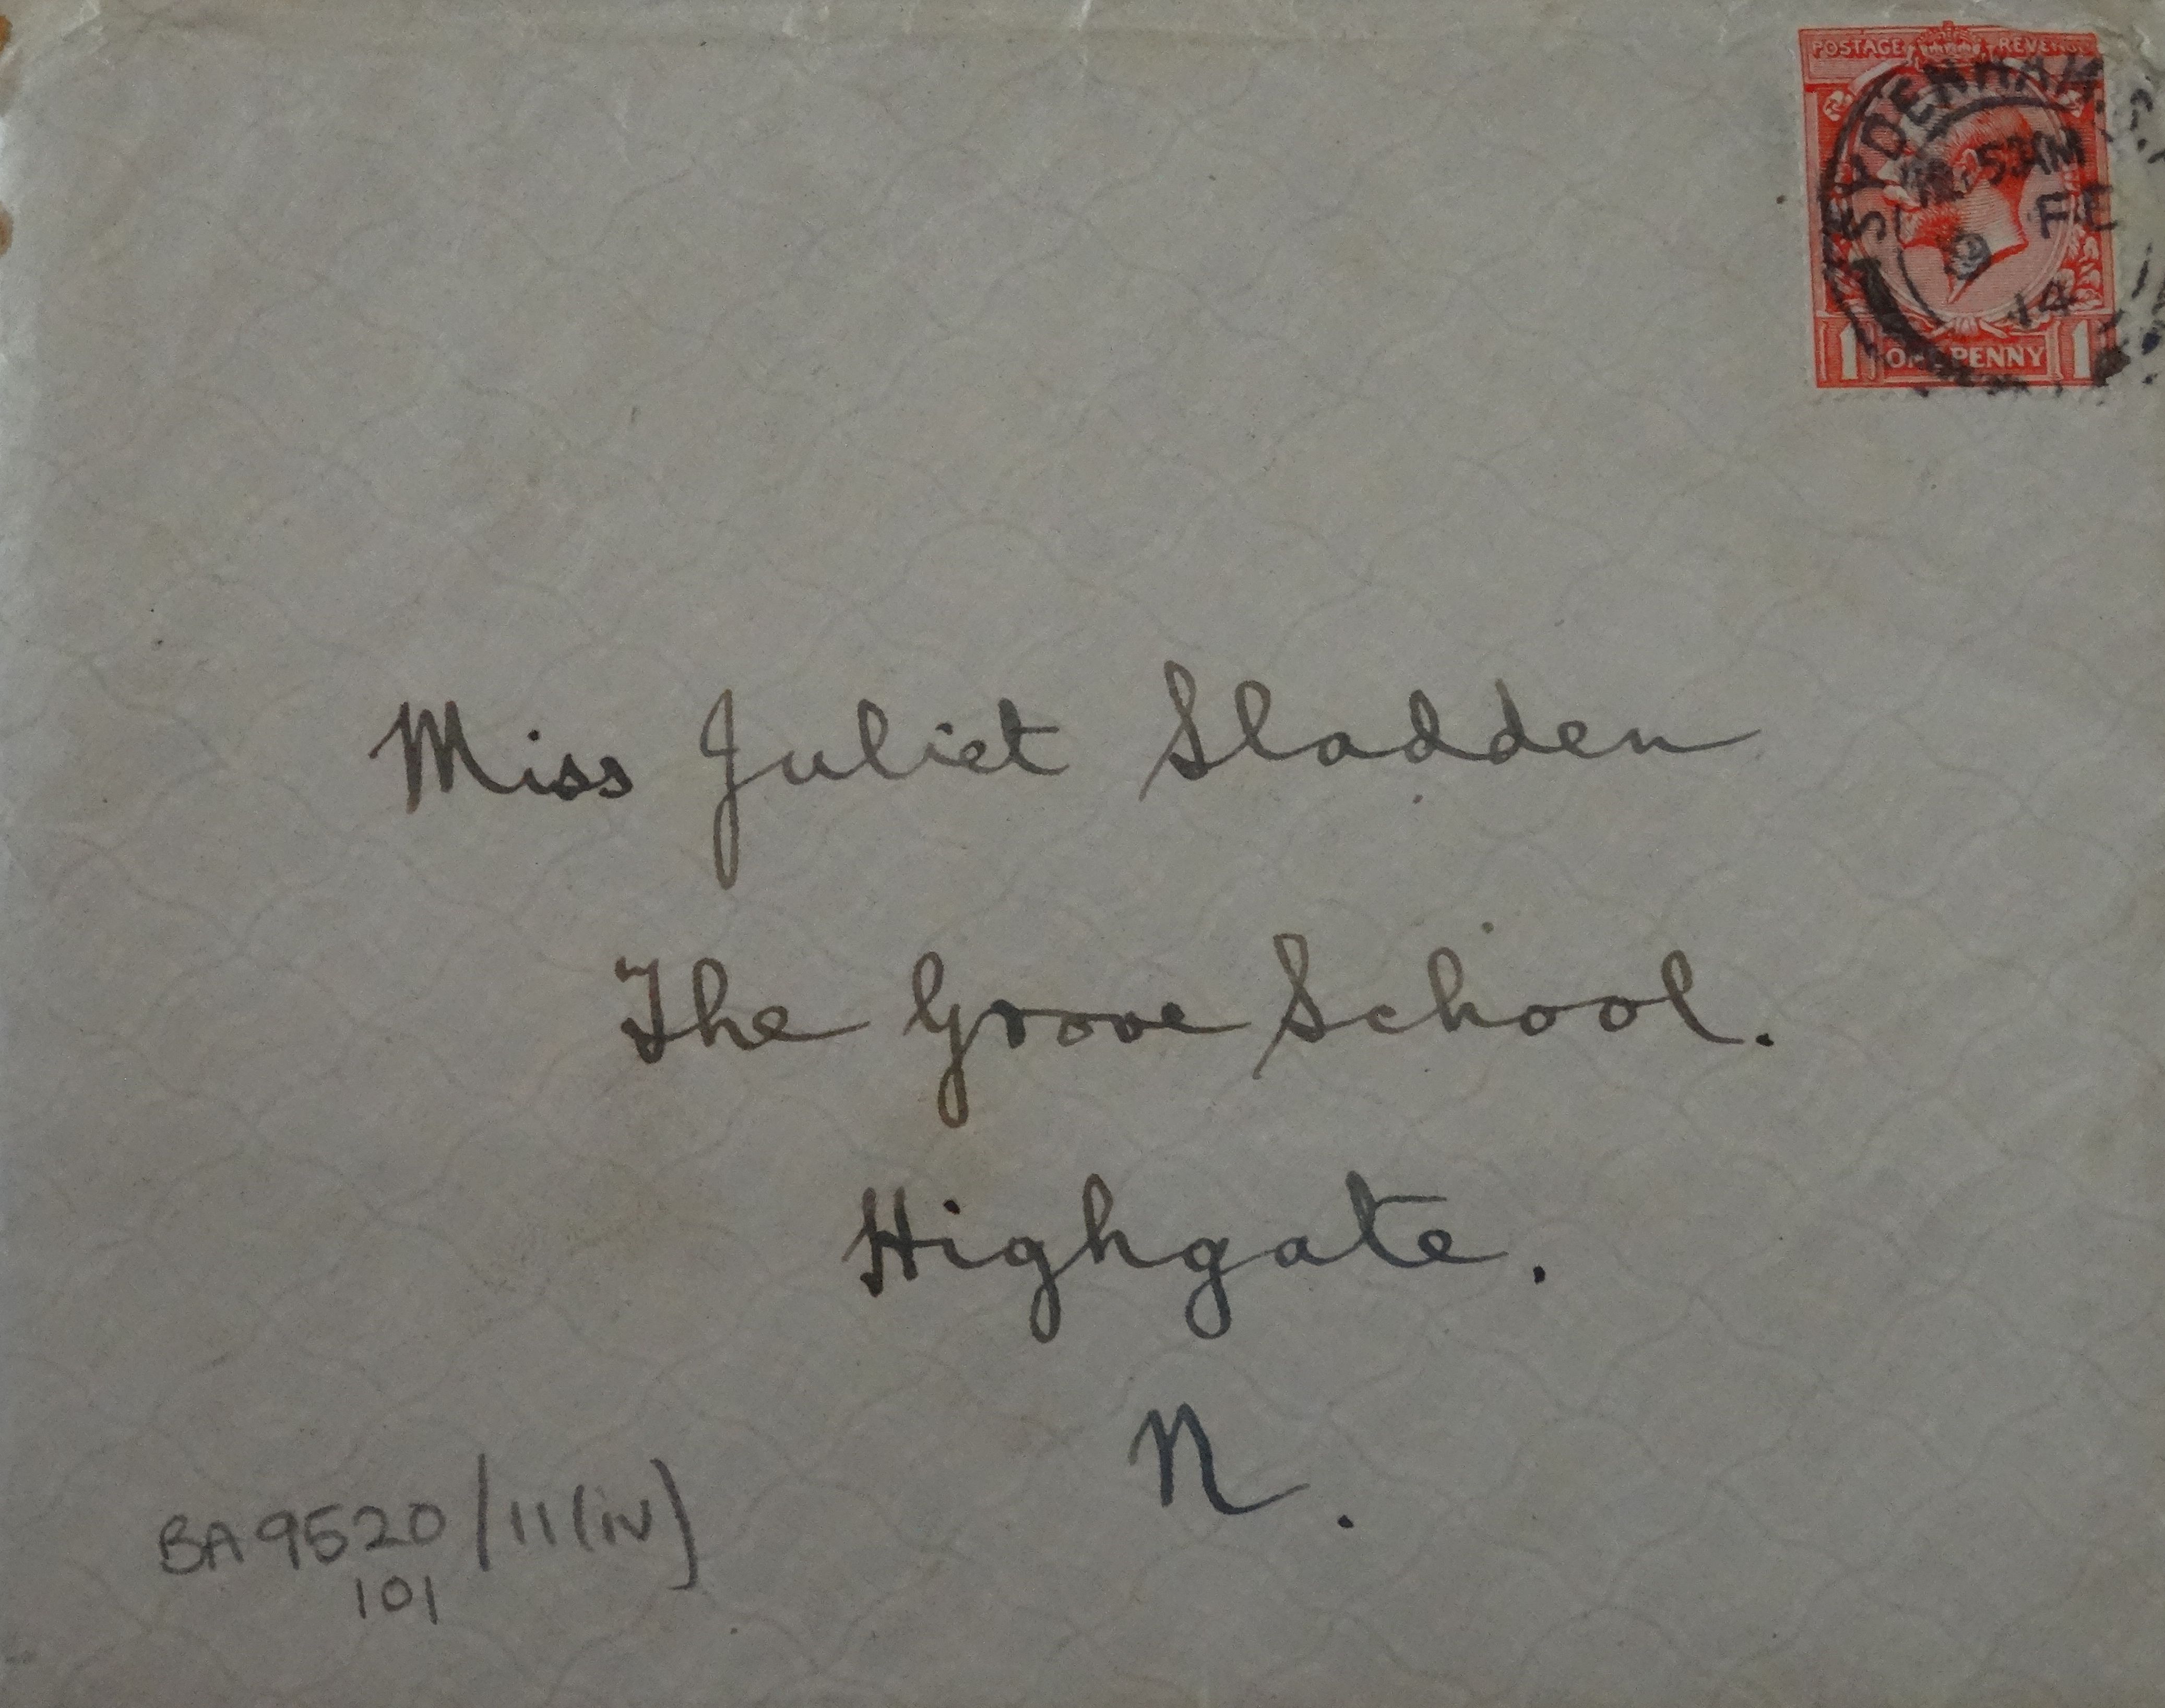 POSTAGE REVENUE
SYDENHAM. S.E.
AM
FE
14
1 ONE PENNY 1
Miss Juliet Sladden
The Grove School.
Highgate.
N.
BA9520/11(iv)
101